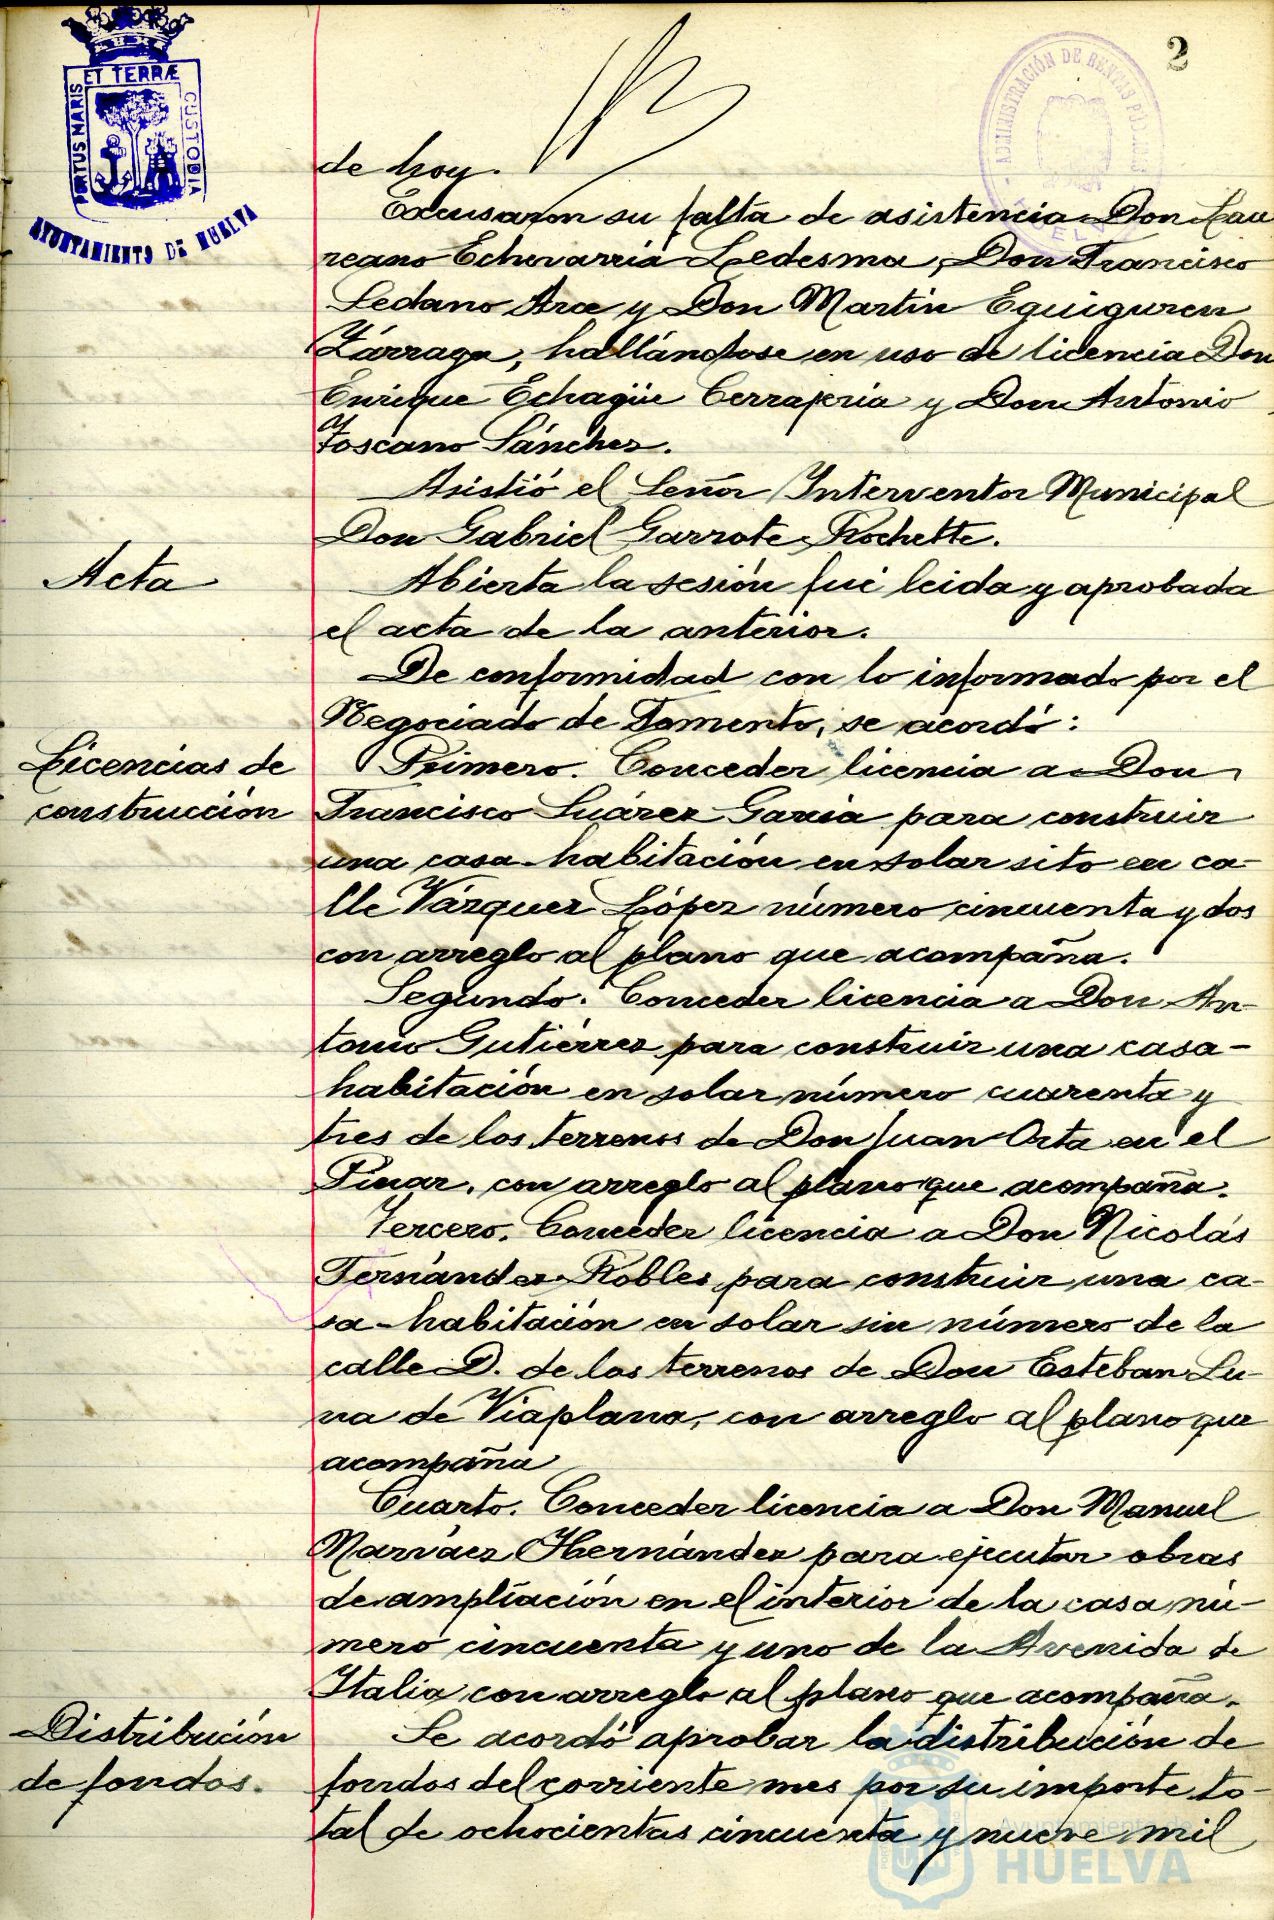 2
PORTUS MARIS ET TERRÆ CUSTODIA
AYUNTAMIENTO DE HUELVA
ADMINISTRACIÓN DE RENTAS PÚBLICAS
HUELVA
de hoy.
Excusaron su falta de asistencia Don Lau
reano Echevarria Ledesma, Don Francisco
Sedano Arce y Don Martin Eguiguren
Zárraga, hallándose en uso de licencia Don
Enrique Echagüe Cerrajeria y Don Antonio
Toscano Sánchez.
Asistió el Señor Interventor Municipal
Don Gabriel Garrote Rochette.
Acta
Abierta la sesión fué leida y aprobada
el acta de la anterior.
De conformidad con lo informado por el
Negociado de Fomento, se acordó:
Licencias de
construcción
Primero. Conceder licencia a Don
Francisco Suárez Garcia para construir
una casa-habitación en solar sito en ca-
lle Vázquez López número cincuenta y dos
con arreglo al plano que acompaña.
Segundo. Conceder licencia a Don An-
tonio Gutiérrez para construir una casa-
habitación en solar número cuarenta y
tres de los terrenos de Don Juan Orta en el
Pinar, con arreglo al plano que acompaña.
Tercero. Conceder licencia a Don Nicolás
Fernández Robles para construir una ca-
sa-habitación en solar sin número de la
calle D. de los terrenos de Don Esteban Lu-
na de Viaplana, con arreglo al plano que
acompaña
Cuarto. Conceder licencia a Don Manuel
Narváez Hernández para ejecutar obras
de ampliación en el interior de la casa nú-
mero cincuenta y uno de la Avenida de
Italia con arreglo al plano que acompaña.
Distribución
de fondos.
Se acordó aprobar la distribución de
fondos del corriente mes por su importe to-
tal de ochocientas cincuenta y nueve mil
Ayuntamiento de
HUELVA